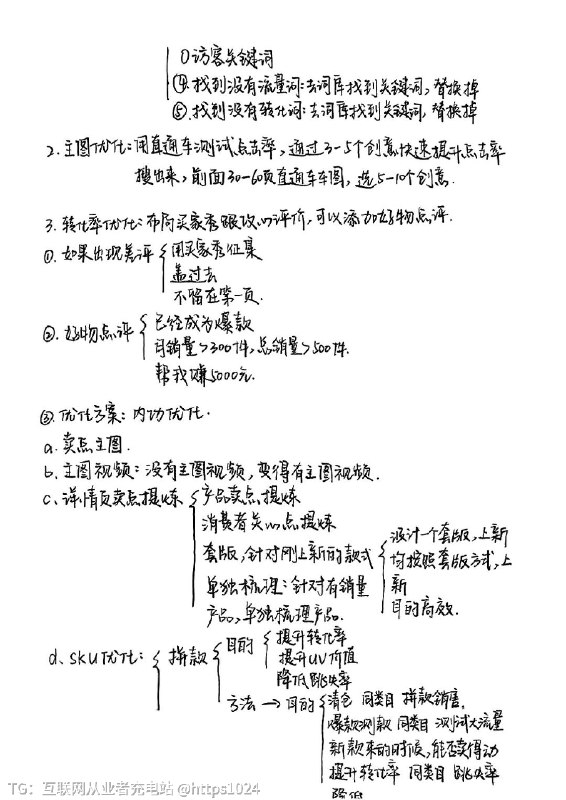 ① 访客关键词
④. 找到没有流量词: 去词库找到关键词, 替换掉
⑤. 找到没有转化词: 去词库找到关键词, 替换掉
2. 主图优化: 用直通车测试点击率, 通过3-5个创意快速提升点击率
搜出来, 前面30-60页直通车车图, 选5-10个创意.
3. 转化率优化: 布局买家秀跟改心评价, 可以添加好物点评.
①. 如果出现差评
用买家秀征集
盖过去
不留在第一页.
②. 好物点评
已经成为爆款
月销量>300件, 总销量>500件.
帮我赚5000元.
③. 优化方案: 内功优化.
a. 卖点主图.
b. 主图视频: 没有主图视频, 变得有主图视频.
c. 详情页卖点提炼
产品卖点提炼
消费者关心点提炼
套版, 针对刚上新的款式
设计一个套版, 上新
均按照套版方式, 上
新
目的高效.
单独梳理: 针对有销量
产品, 单独梳理产品.
d. SKU优化:
拼款
目的
提升转化率
提升UV价值
降低跳失率
方法 → 目的
清仓 同类目 拼款销售.
爆款测款 同类目 测试大流量
新款来的时候, 能否卖得动
提升转化率 同类目 跳失率
降低
TG: 互联网从业者充电站 @https1024